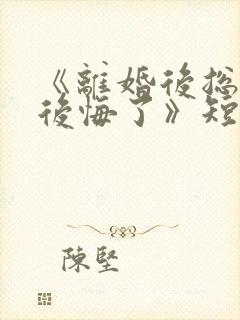 《離婚後总
後悔了》短
陳堅